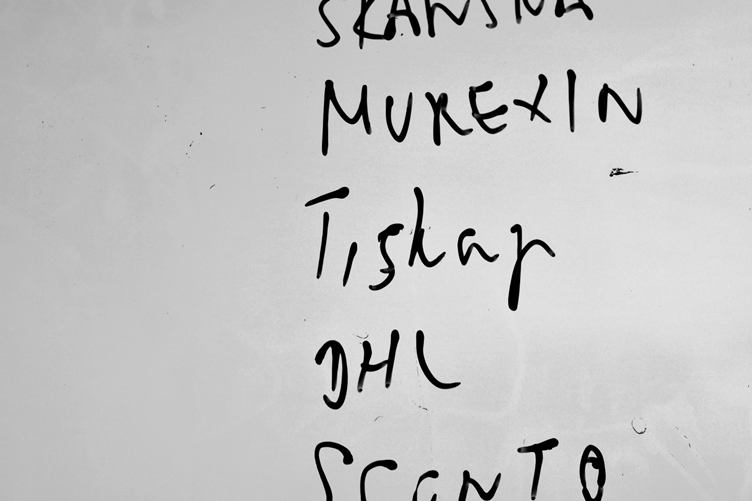 SKANSKA
MUREXIN
Tiskap
DHL
SCONTO